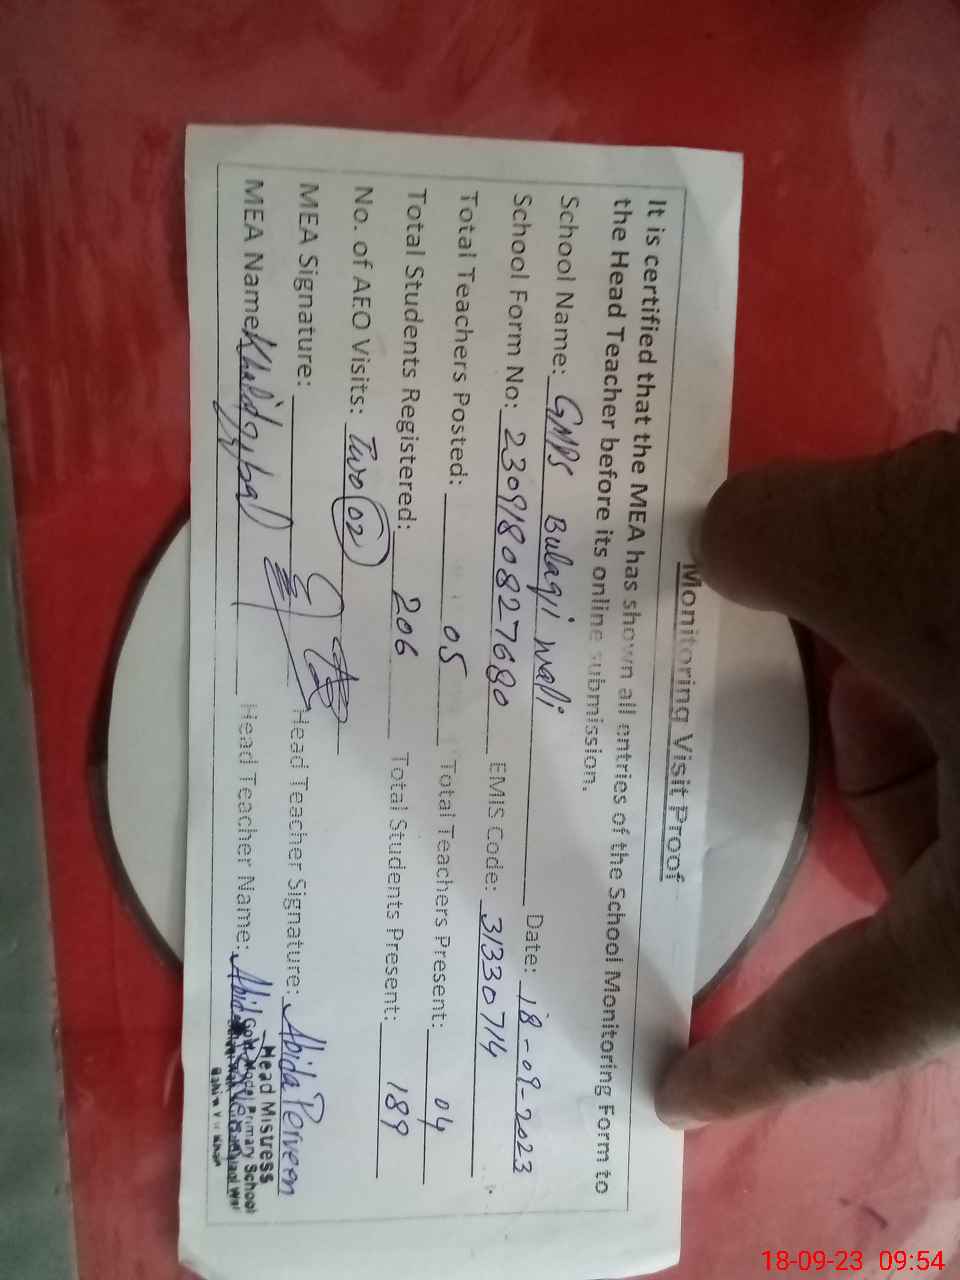 Monitoring Visit Proof
It is certified that the MEA has shown all entries of the School Monitoring Form to
the Head Teacher before its online submission.
School Name: GMPS Bulaqi wali Date: 18-09-2023
School Form No: 2309180827680 EMIS Code: 31330714
Total Teachers Posted: 05 Total Teachers Present: 04
Total Students Registered: 206 Total Students Present: 189
No. of AEO Visits: Two 02
MEA Signature: Head Teacher Signature: Abida Perveen
MEA Name: Khalid Iqbal Head Teacher Name: Abida
Head Mistress
Govt. Model Primary School
18-09-23 09:54